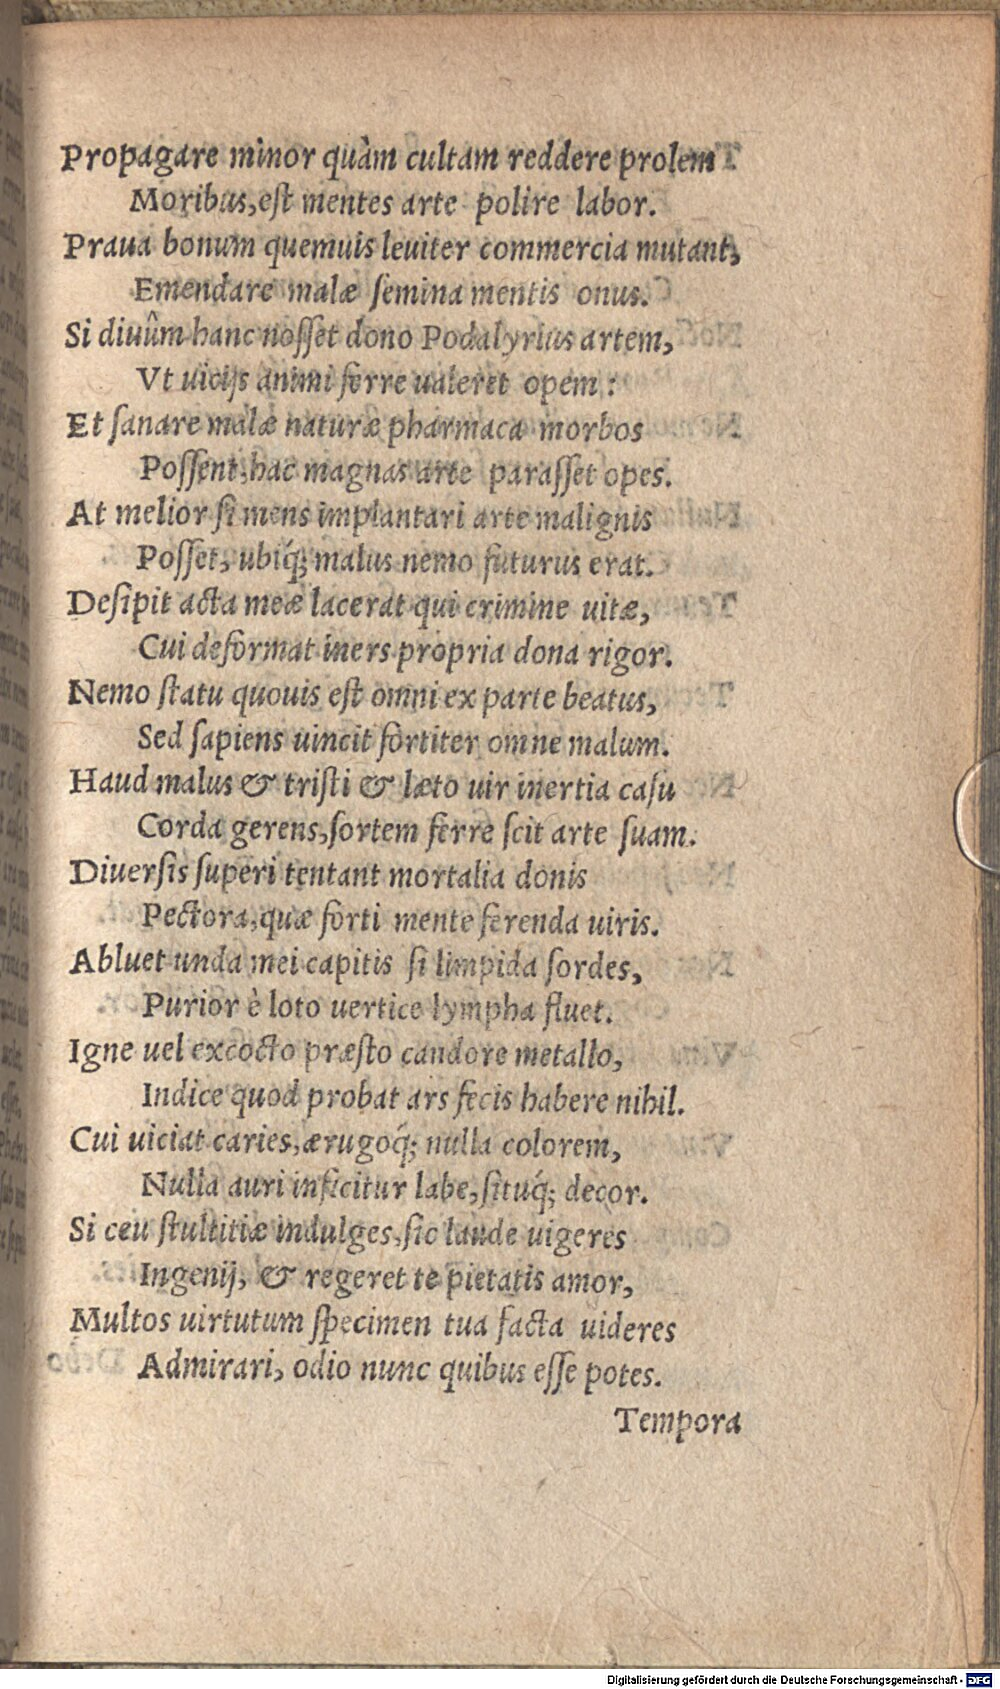 Propagare minor quàm cultam reddere prolem
Moribus, est mentes arte polire labor.
Praua bonum quemuis leuiter commercia mutant,
Emendare malæ semina mentis onus.
Si diuûm hanc nosset dono Podalyrius artem,
Vt uicijs animi ferre ualeret opem:
Et sanare malæ naturæ pharmaca morbos
Possent, hac magnas arte parasset opes.
At melior si mens implantari arte malignis
Posset, ubiq́; malus nemo futurus erat.
Desipit acta meæ lacerat qui crimine uitæ,
Cui deformat iners propria dona rigor.
Nemo statu quouis est omni ex parte beatus,
Sed sapiens uincit fortiter omne malum.
Haud malus & tristi & læto uir inertia casu
Corda gerens, sortem ferre scit arte suam.
Diuersis superi tentant mortalia donis
Pectora, quæ forti mente ferenda uiris.
Abluet unda mei capitis si limpida sordes,
Purior è loto uertice lympha fluet.
Igne uel excocto præsto candore metallo,
Indice quod probat ars fecis habere nihil.
Cui uiciat caries, ærugoq́; nulla colorem,
Nulla auri inficitur labe, situq́; decor.
Si ceu stultitiæ indulges, sic laude uigeres
Ingenij, & regeret te pietatis amor,
Multos uirtutum specimen tua facta uideres
Admirari, odio nunc quibus esse potes.
Tempora
Digitalisierung gefördert durch die Deutsche Forschungsgemeinschaft - DFG